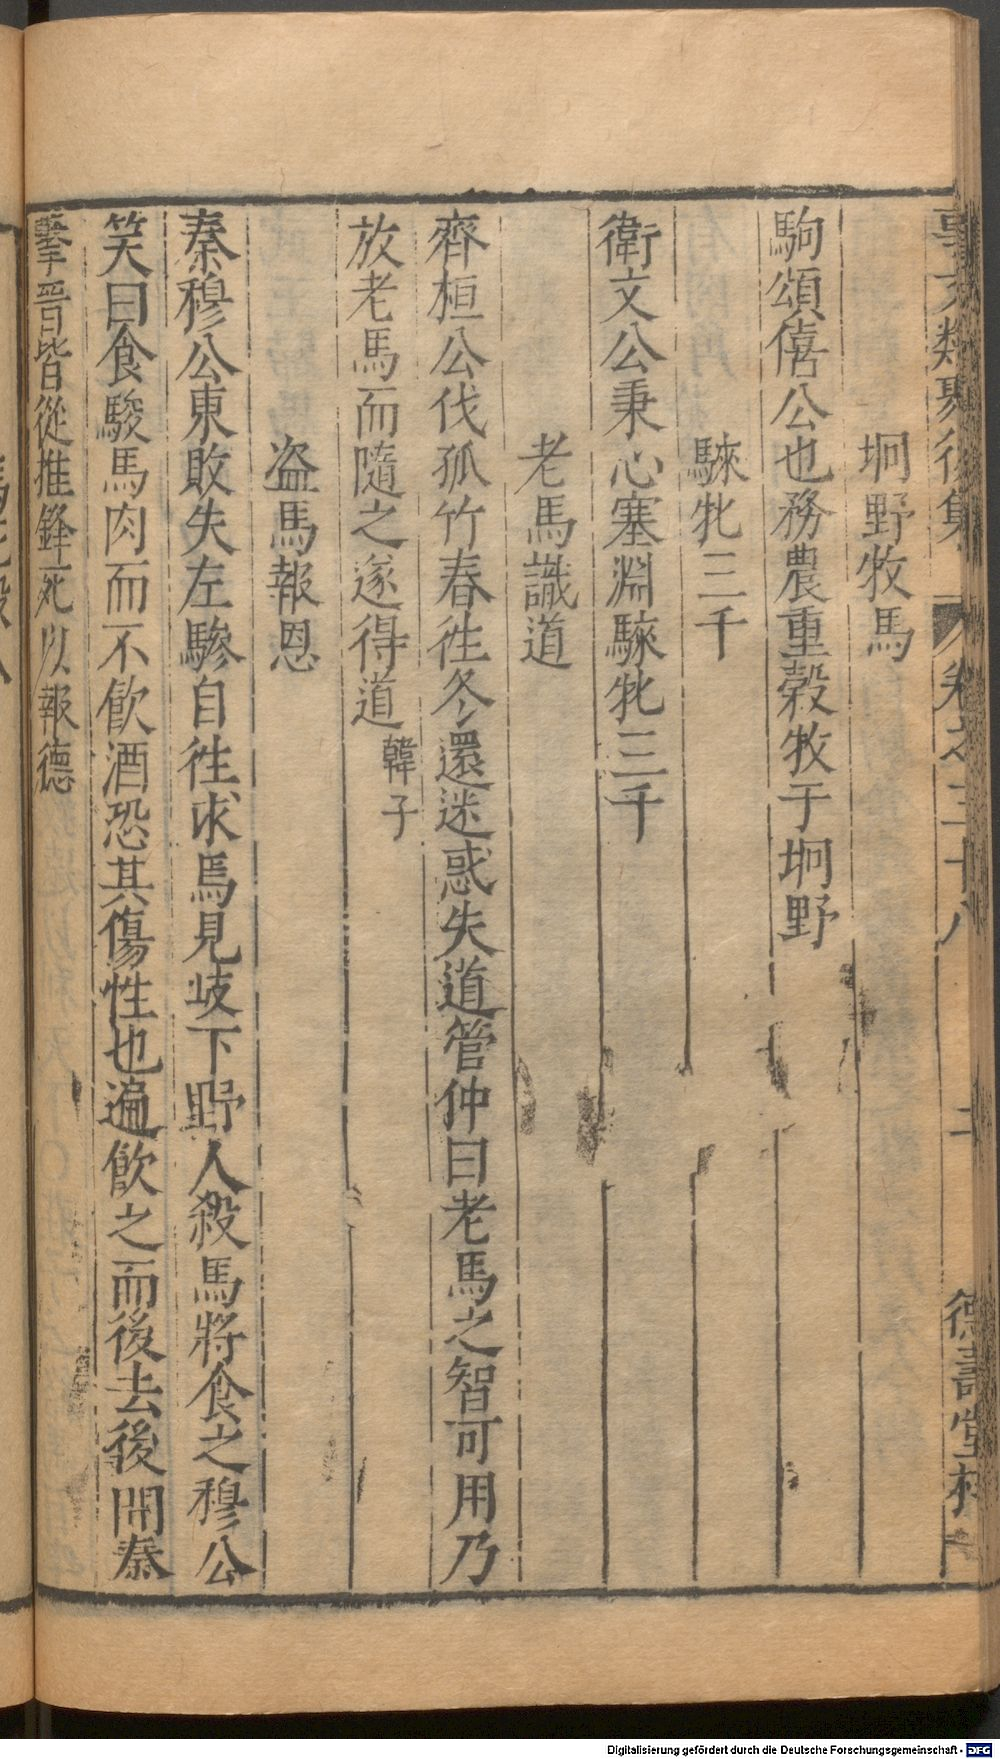 事文類聚後集 卷之三十八 二 德壽堂梓
坰野牧馬
駉頌僖公也務農重穀牧于坰野
騋牝三千
衛文公秉心塞淵騋牝三千
老馬識道
齊桓公伐孤竹春徃冬還迷惑失道管仲曰老馬之智可用乃
放老馬而隨之遂得道 韓子
盗馬報恩
秦穆公東敗失左驂自徃求焉見岐下野人殺馬將食之穆公
笑曰食駿馬肉而不飲酒恐其傷性也遍飲之而後去後開秦
擊晉皆從推鋒死以報德
Digitalisierung gefördert durch die Deutsche Forschungsgemeinschaft - DFG